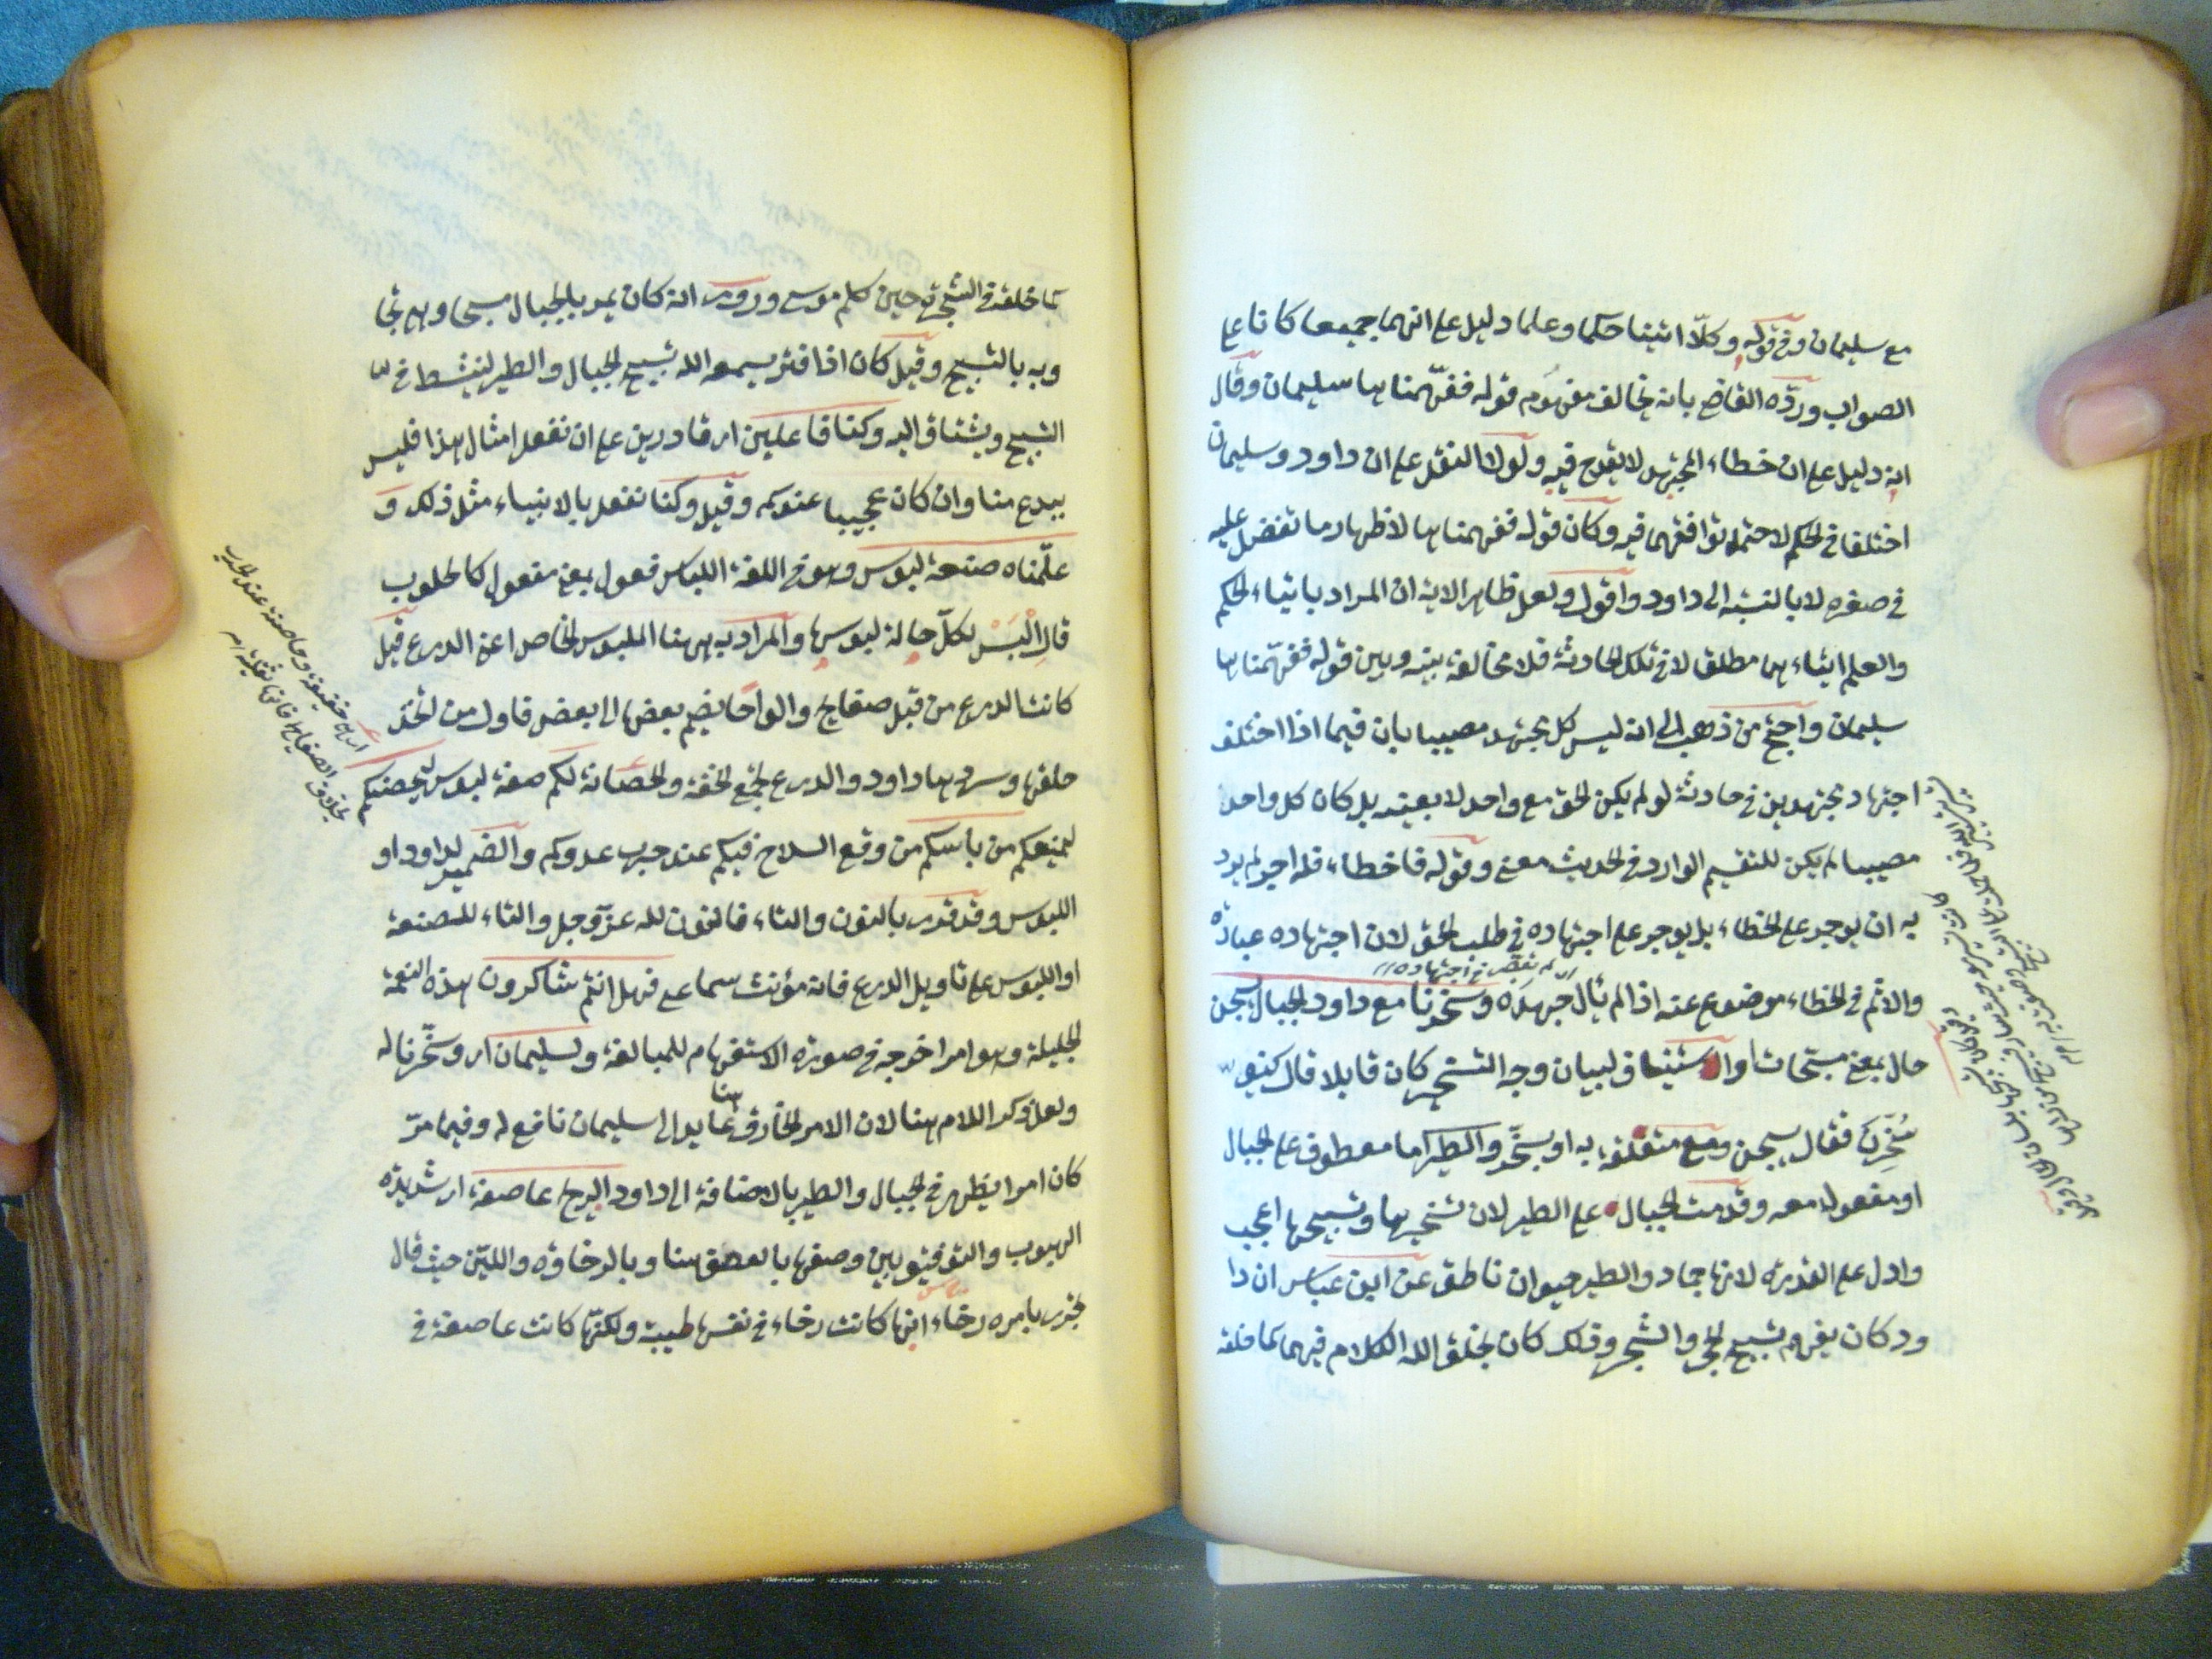 مع سليمان وفي قوله وكلّا اتينا حكما وعلما دليل على انهما جميعا كانا على
الصواب وردّه القاضي بانه يخالف مفهوم قوله ففهّمناها سليمان وقال
انه دليل على ان خطاء المجتهد لا يقدح فيه ولولا النقل على ان داود وسليمان
اختلفا في الحكم لاحتمل توافقهما فيه وكان قوله ففهمناها لاظهار ما تفضل عليه
في صغره لا بالنسبة الى داود واقول ولعل ظاهر الاية ان المراد بايتاء الحكم
والعلم ايتاءهما مطلقا لا في تلك الحادثة فلا مخالفة بينه وبين قوله ففهّمناها
سليمان واحتج من ذهب الى انه ليس كل مجتهد مصيبا بان فيما اذا اختلف
اجتهاد مجتهدين في حادثة لو لم يكن الحق مع واحد لا بعينه بل كان كل واحد
مصيبا لم يكن للتقسيم الوارد في الحديث معنى وقوله فاخطاء فله اجر لم يرد
به ان يوجر على الخطاء بل يوجر على اجتهاده في طلب الحق لان اجتهاده عبادة
اي لم يقصّر في اجتهاده
والاثم في الخطاء موضوع عنه اذا لم يال جهده وسخرنا مع داود الجبال يسبحن
حال بمعنى مسبّحات او استيناف لبيان وجه التسخير كان قايلا قال كيف
سخّرت فقال يسبحن ومع متعلقة به او بسخّر والطير اما معطوف على الجبال
او مفعول معه وقدمت الجبال على الطير لان تسخيرها وتسبيحها اعجب
وادل على القدرة لانها جماد والطير حيوان ناطق عن ابن عباس ان دا
ود كان يفهم تسبيح الحجر والشجر وذلك كان بخلق الله الكلام فيهما كما خلقه
كما خلقه في الشجرة حين كلم موسى وروى انه كان يمر بالجبال مسبحا وهي تجا
وبه بالتسبيح وقيل كان اذا فتر يسمعه الله تسبيح الجبال والطير لينشط في
التسبيح ويشتاق اليه وكنا فاعلين اى قادرين على ان نفعل امثال هذا فليس
ببدع منا وان كان عجيبا عندكم وقيل وكنا نفعل بالانبياء مثل ذلك و
علّمناه صنعة لبوس وهو في اللغة اللباس فعول بمعنى مفعول كالحلوب
قال البس لكلّ حالة لبوسها والمراد به ههنا الملبوس الخاص اعني الدرع قيل
كانت الدرع من قبل صفايح والواحا يضم بعضها الى بعض فاول من اتخذ
حلقها وسردها داود والدرع يجمع الخفة والحصانة لكم صفة لبوس ليحصنكم
ليمنعكم من باسكم من وقع السلاح فيكم عند حرب عدوكم والضمير لداود او
اللبوس وقد قرى بالنون والتاء فالنون لله عزّ وجل والتاء للصنعة
او اللبوس على تاويل الدرع فانه مؤنث سماعي فهل انتم شاكرون هذه النعمة
الجليلة وهو امر اخرجه في صورة الاستفهام للمبالغة ولسليمان اى وسخّرنا له
ولعل ذكر اللام هنا لان الامر الخارق هنا عايد الى سليمان نافع له وفيما مرّ
كان امرا يظهر في الجبال والطير بالاضافة الى داود الريح عاصفة اى شديدة
الهبوب والتوفيق بين وصفها بالعصف هنا وبالرخاوة واللين حيث قال
تجري بامره رخاء انها كانت رخاء في نفسها طيبة ولكنّها كانت عاصفة في